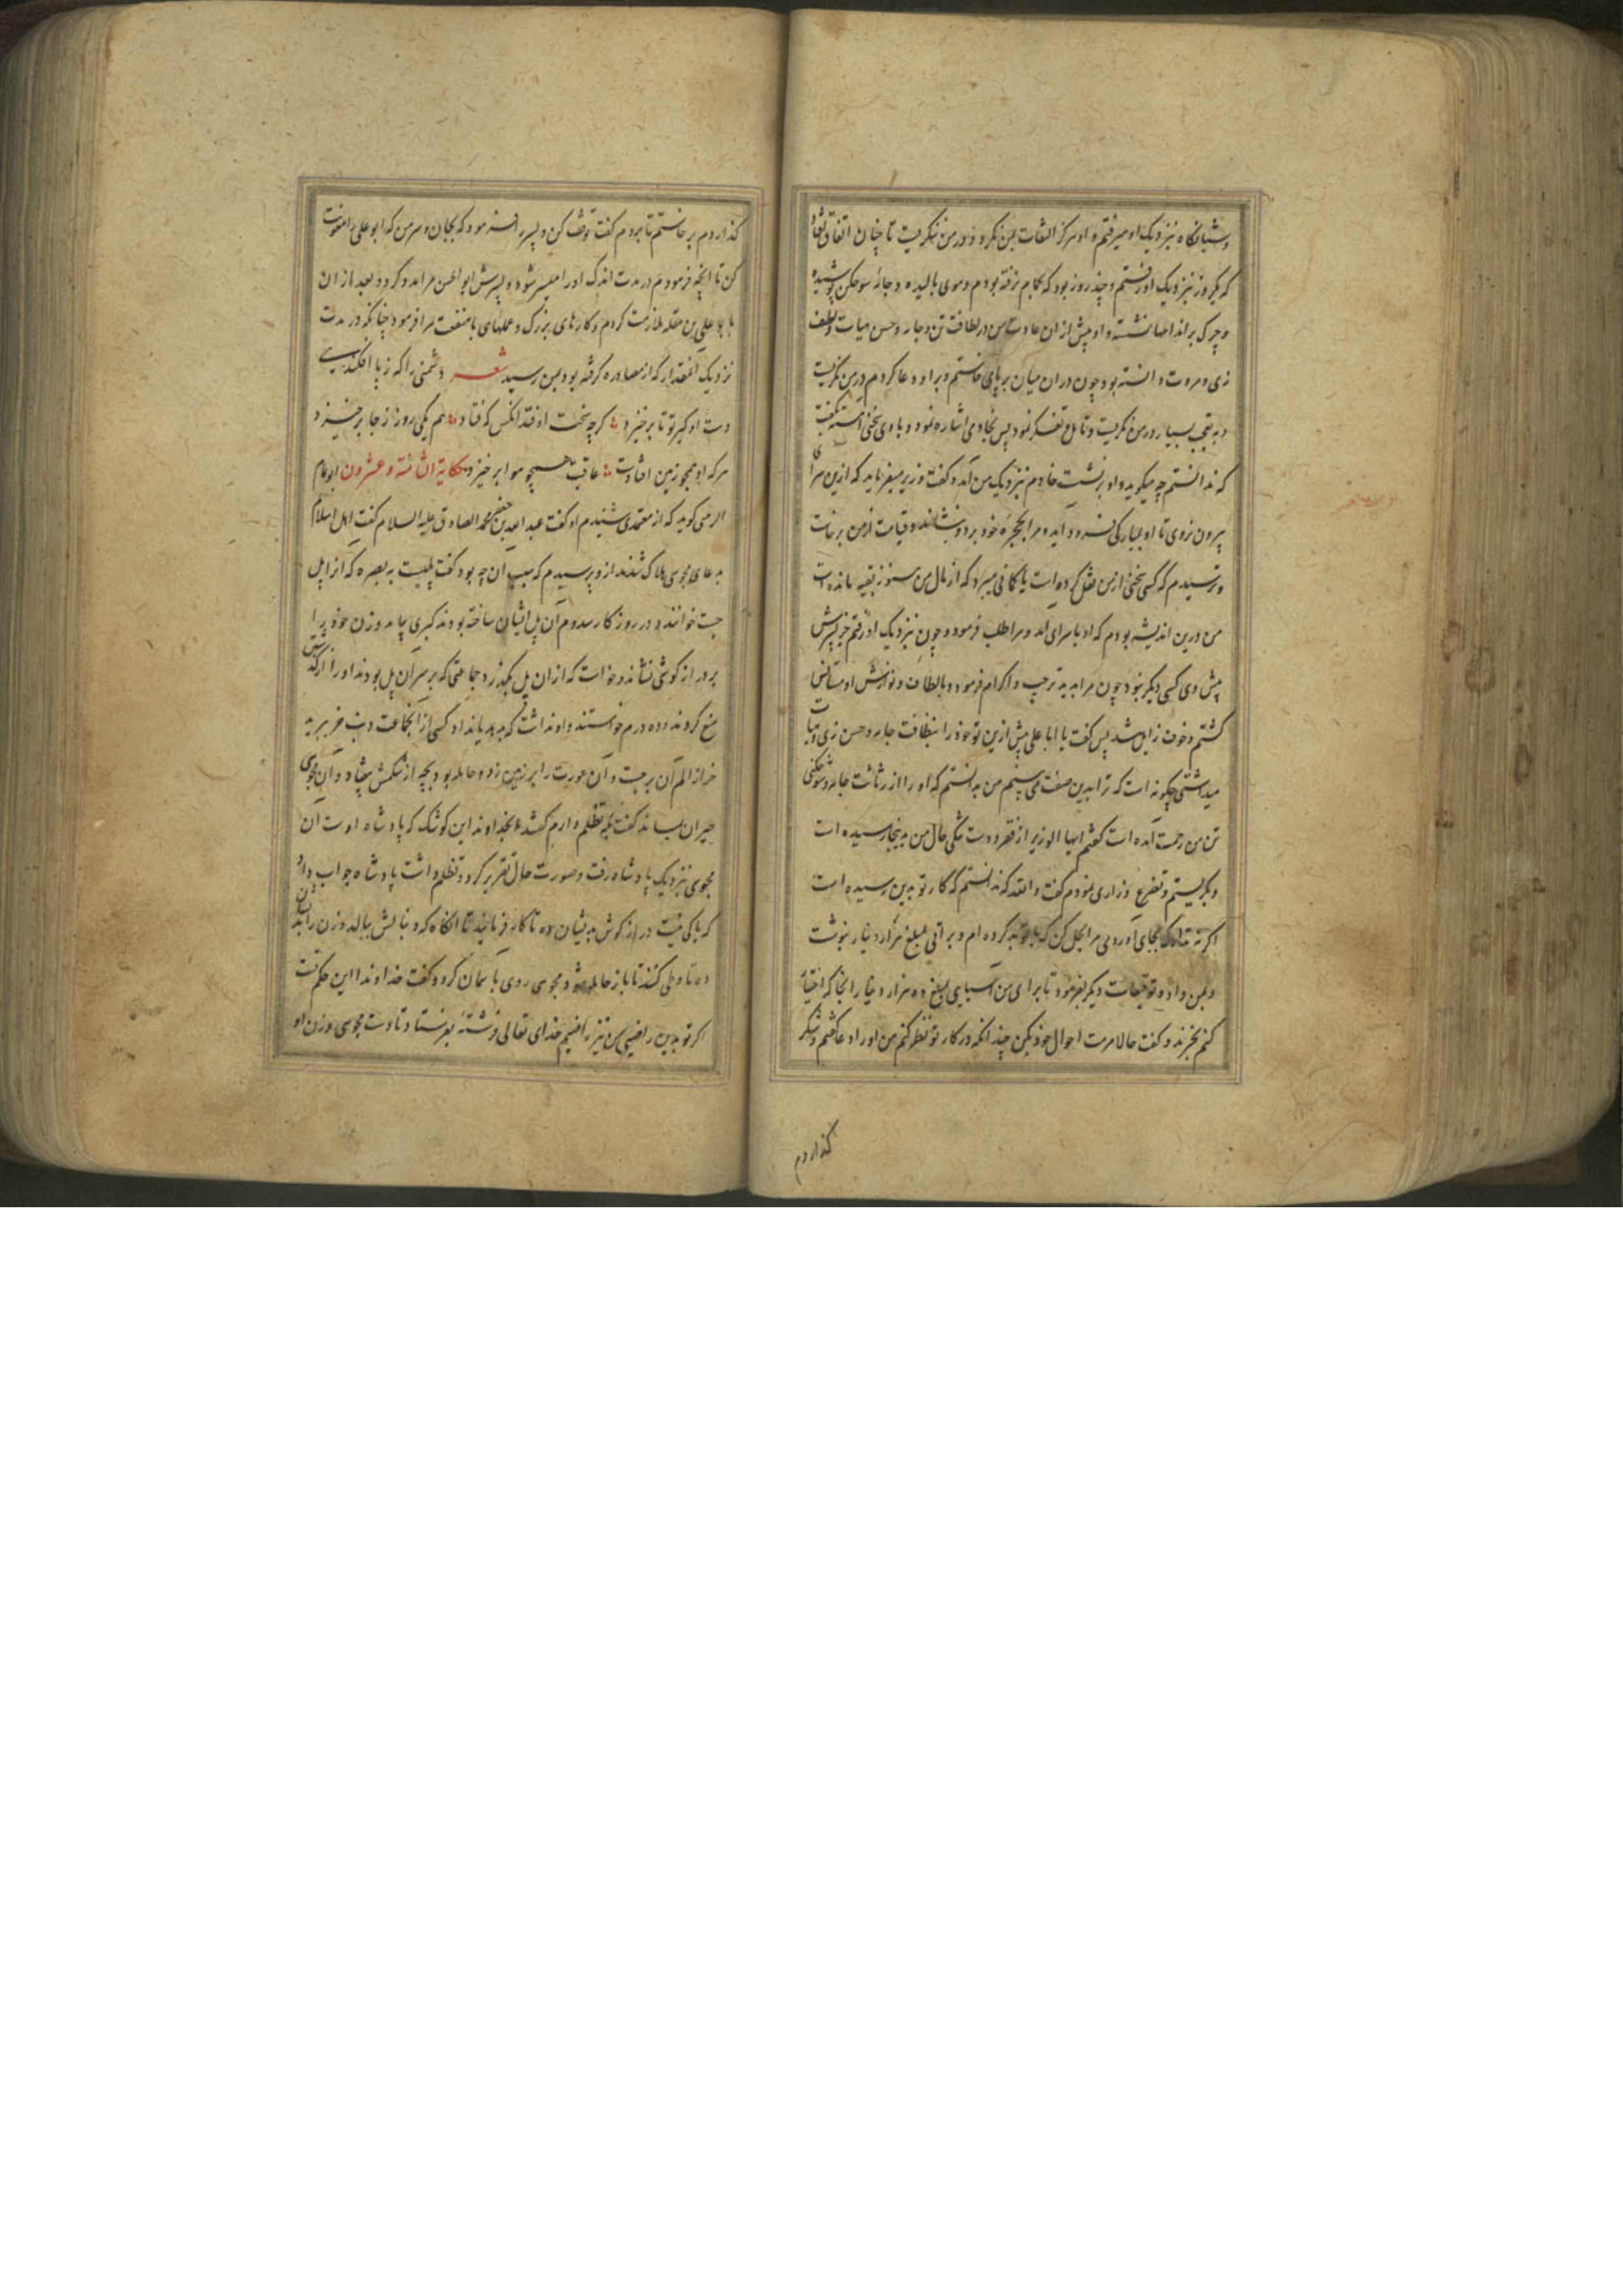 و شبانگاه بنزدیک او میرفتم و او هرگز التفات بمن نکرد و در من ننگریست تا چنان اتفاق افتاد
که یکروز بنزدیک او رفتم و چند روز بود که بحمام نرفته بودم و موی بالیده و جامهٔ شوخگن پوشیده
و چرک بر اندامها نشسته و او پیش از آن عادت من در لطافت تن و جامه و حسن هیات و لطف
زی و مروت دانسته بود چون در آن میان بر پای خاستم و بر او دعا کردم در من نگریست
و بتعجب بسیار در من نگریست و تامل و تفکر نمود پس بخادمی اشاره نمود و با وی سخنی آهسته بگفت
که ندانستم چه میگوید و او برنشست خادم بنزدیک من آمد و گفت وزیر میفرماید که ازین سرای
بیرون نروی تا او بیارگی فرود آید و مرا بحجره خود برد و بنشاند و قیامت از من برخاست
و ترسیدم که کسی سخنی از من نقل کرده است یا گمانی میبرد که از مال من هنوز بقیه مانده است
من درین اندیشه بودم که او با سرای آمد و مرا طلب فرمود و چون بنزدیک او رفتم جز پسرش
پیش وی کسی دیگر نبود چون مرا بدید ترحیب و اکرام فرمود و بالطاف و نوازش او مستانس
گشتم و خوف زایل شد پس گفت یا ابا علی پیش ازین تو خود را بنظافت جامه و حسن زی و ثیاب
میداشتی چگونه است که ترا بدین صفت می بینم من بدانستم که او را از رثاثت جامه و شوخگنی
تن من رحمت آمده است گفتم ایها الوزیر از فقر و دست تنگی حال من به اینجا رسیده است
و بگریستم و تضرع و زاری نمودم گفت والله که ندانستم که کار تو بدین رسیده است
اگر نه بجای آوردمی مرا بحل کن که توبه کرده ام و براتی بمبلغ هزار دینار نبوشت
و بمن داد و توقیعات دیگر بفرمود تا برای من آسیایی بمبلغ ده هزار دینار آنجا که اختیار
کنم بخرند و گفت حالا مرمت احوال خود بکن چندانکه در کار تو نظر کنم من او را دعا گفتم و شکر
گذاردم
گذاردم برخاستم تا بروم گفت توقف کن و پسر را فرمود که بجان و سر من که ابو علی را معونت
کن تا آنچه فرمودم در مدت اندک او را میسر شود و پسرش ابو الحسن مرا مدد کرد و بعد از آن
با بو علی بن مقله ملازمت کردم و کارهای بزرگ و عملهای با منفعت مرا فرمود چنانکه در مدت
نزدیک آنمقدار که از مصادره گرفته بود بمن رسید شعر دشمنی را که ز پا افکندیـ
دست او گیر تو تا برخیزد گرچه سخت اوفتد آنکس که فتاد هم یکی روز ز جا برخیزد
هر که او همچو زمین افتادست عاقبت همچو هوا برخیزد حکایة الثامنة و عشرون ابو عام
الرمی گوید که از معتمدی شنیدم او گفت عبد الله بن جعفر محمد الصادق علیه السلام گفت اهل اسلام
بدعای مجوسی هلاک شدند از و پرسیدم که سبب آن چه بود گفت پلیست به بصره که آنرا پل
جست خوانند و در روزگار سدوم آن پل ایشان ساخته بودند گبری بیامد و زن خود را
بر دراز گوشی نشاند و خواست که از آن پل بگذرد جماعتی که بر سر آن پل بودند او را از گذشتن
منع کردند و ده درم خواستند و او نداشت که بدیشان داد کسی از آنجماعت دنب خر ببرید
خر از الم آن برجست و آن عورت را بر زمین زد و حامله بود بچه از شکمش بیفتاد و آن مجوسی
حیران بماند گفت بکه تظلم دارم گفتند بخداوند این کوشک که پادشاه اوست آن
مجوسی بنزدیک پادشاه رفت و صورت حال تقریر کرد و تظلم داشت پادشاه جواب داد
که باکی نیست دراز گوش بدیشان ده تا کار فرمایند تا آنگاه که دنبالش ببالد و زن را بدیشان
ده تا وطی کنند تا باز حامله شود مجوسی روی بآسمان کرد و گفت خداوندا این حکم تست
اگر تو بدین راضیی من نیز راضیم خدای تعالی فرشتهٔ بفرستاد تا دست مجوسی و زن او